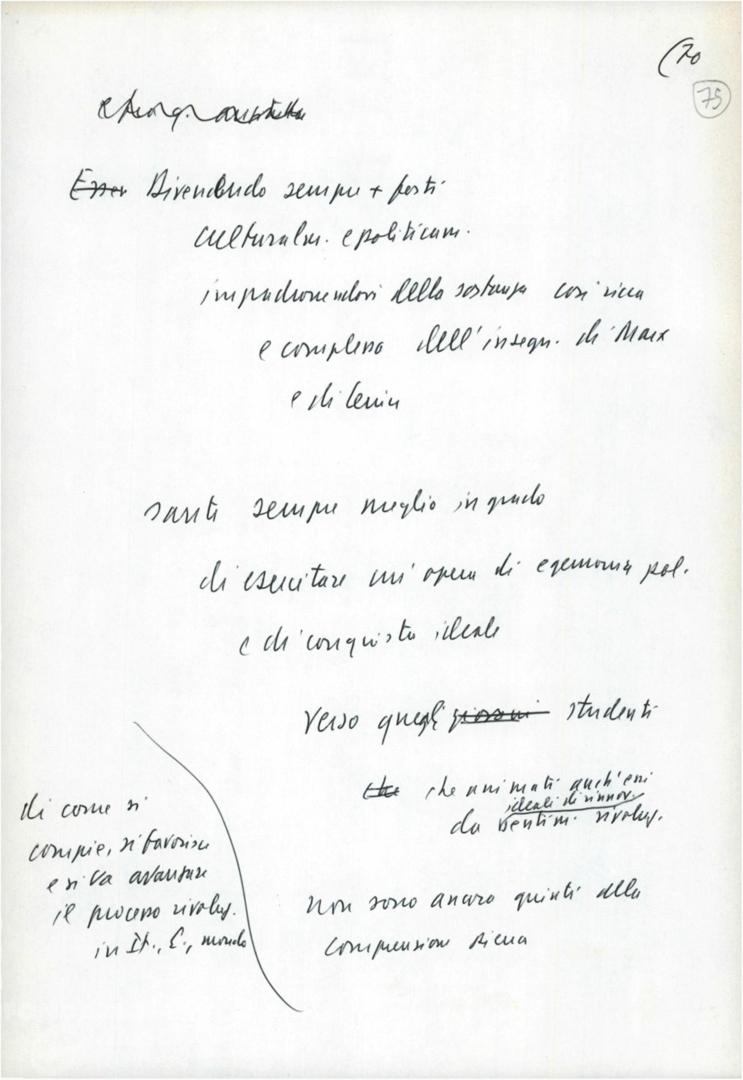 (70
75
Divenendo sempre + forti
culturalm. e politicam.
impadronendovi della sostanza così ricca
e complessa dell'insegn. di Marx
e di Lenin
sarete sempre meglio in grado
di esercitare un'opera di egemonia pol.
e di conquista ideale
verso quegli giovani studenti
che che animati anch'essi
ideali di rinnov.
da sentim. rivoluz.
non sono ancora giunti alla
comprensione piena
di come si
compie, si favorisce
e si fa avanzare
il processo rivoluz.
in It., E., mondo